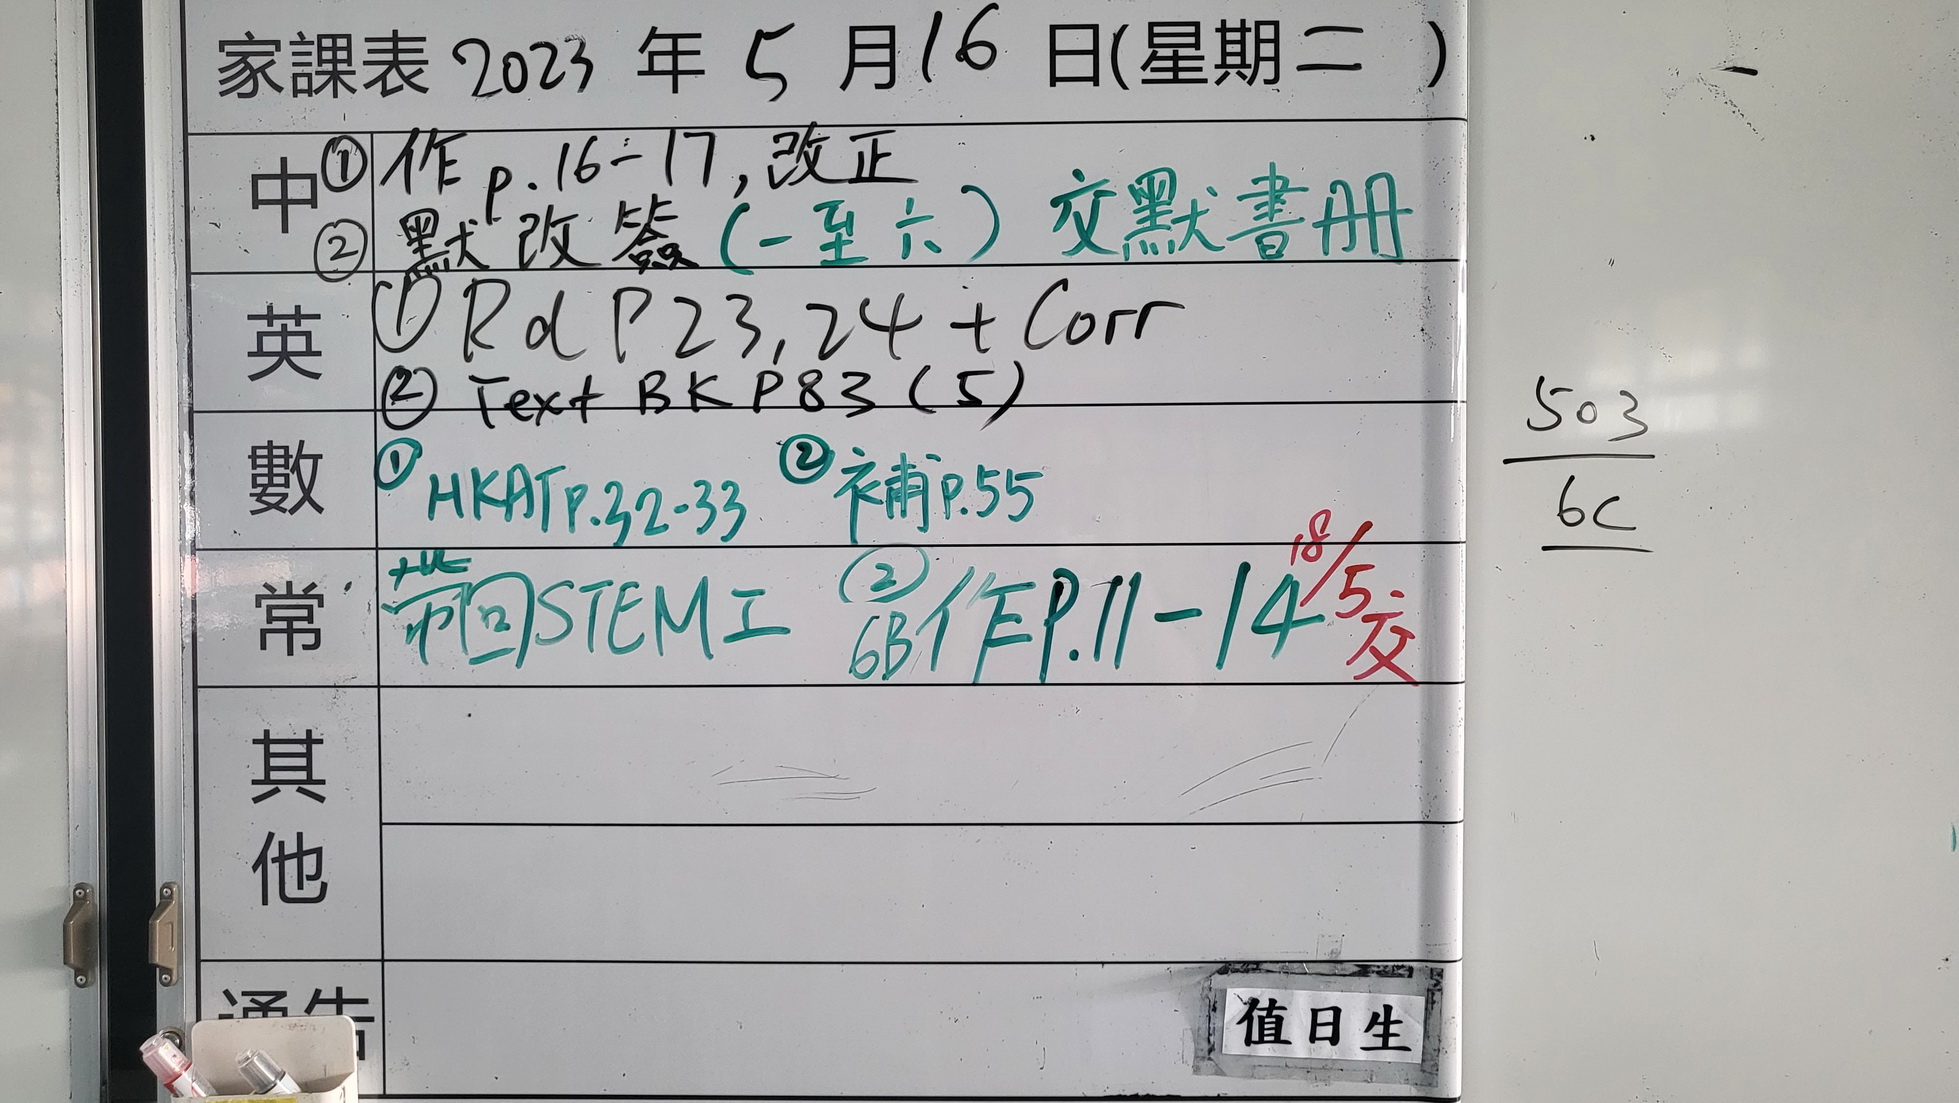 家課表 2023 年 5 月 16 日(星期二 )
中 ① 作 p.16-17, 改正
② 默改簽 (一至六) 交默書冊
英 ① Rd P23, 24 + Corr
② Text BK P83 (5)
數 ① HKAT p.32-33 ② 補 p.55
常 帶回 STEM工 ② 6B作 P.11-14 18/5交
其他
通告
值日生
503
6C